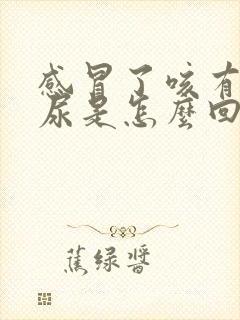 感冒了咳有
尿是怎麼回
蕉绿醬